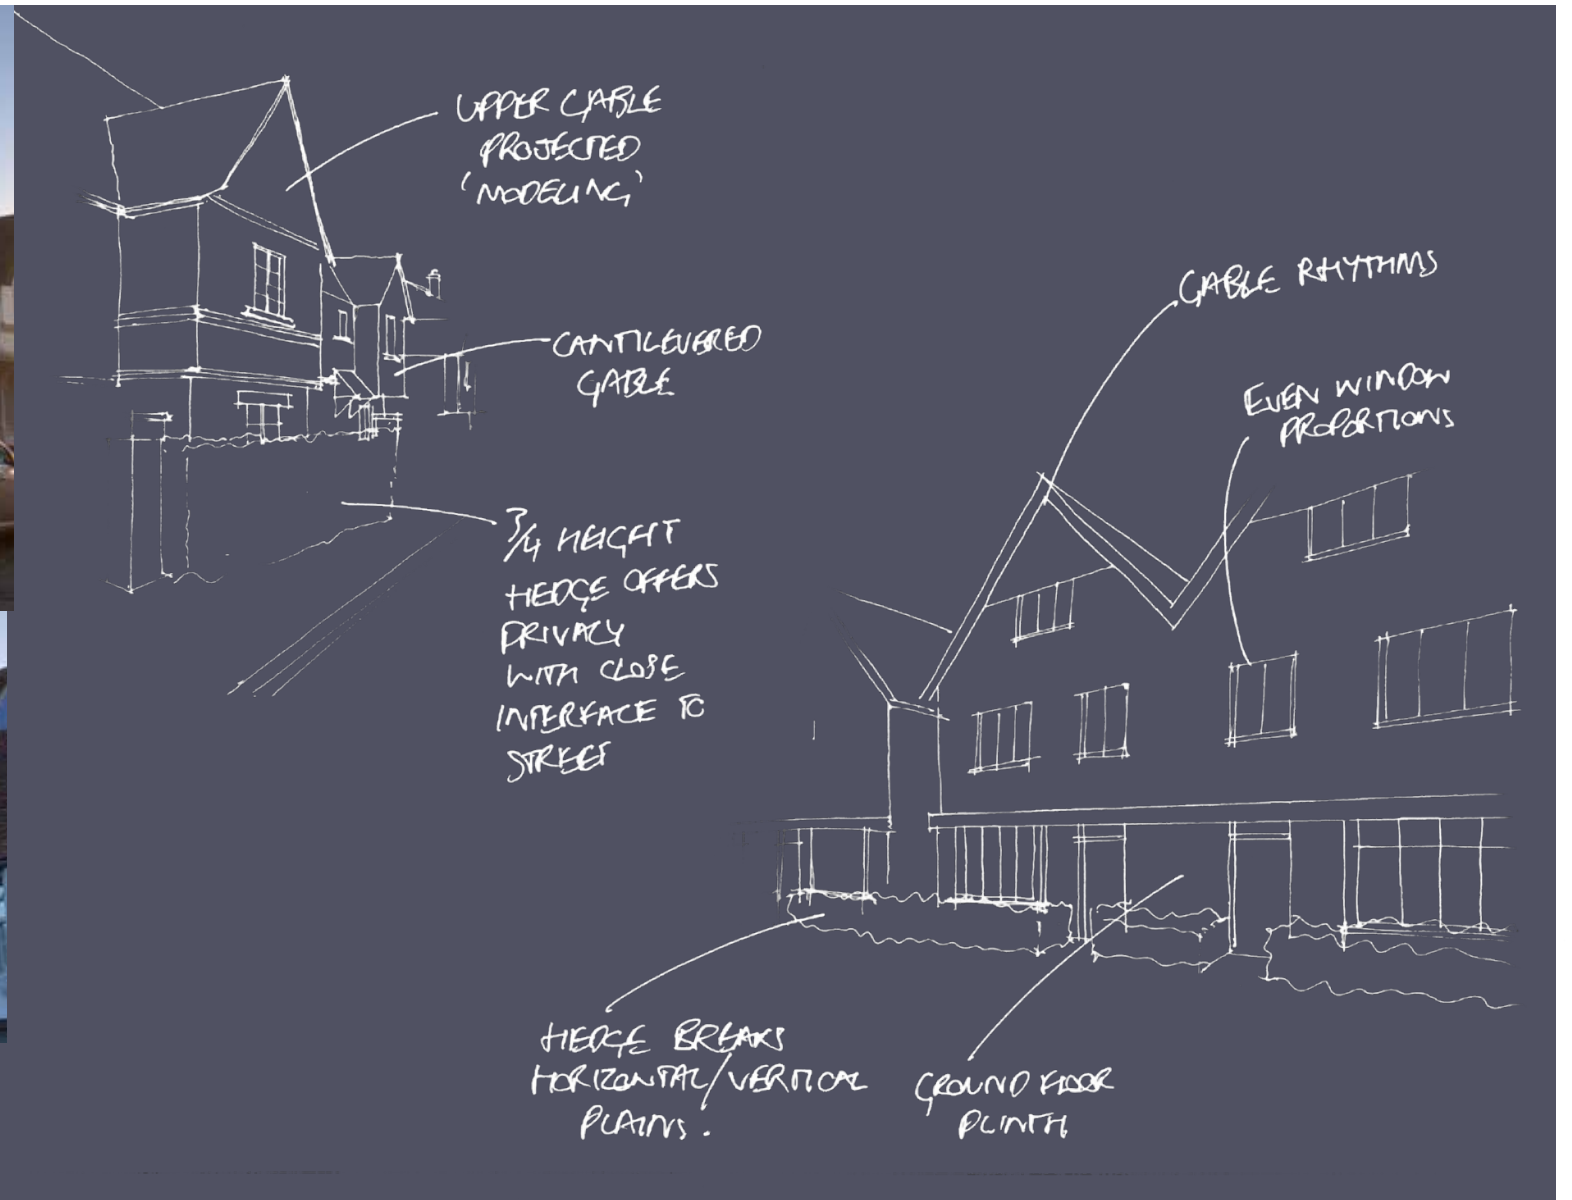 UPPER GABLE
PROJECTED
'MODELING'
CANTILEVERED
GABLE
3/4 HEIGHT
HEDGE OFFERS
PRIVACY
WITH CLOSE
INTERFACE TO
STREET
GABLE RHYTHMS
EVEN WINDOW
PROPORTIONS
HEDGE BREAKS
HORIZONTAL/VERTICAL
PLAINS.
GROUND FLOOR
PLINTH